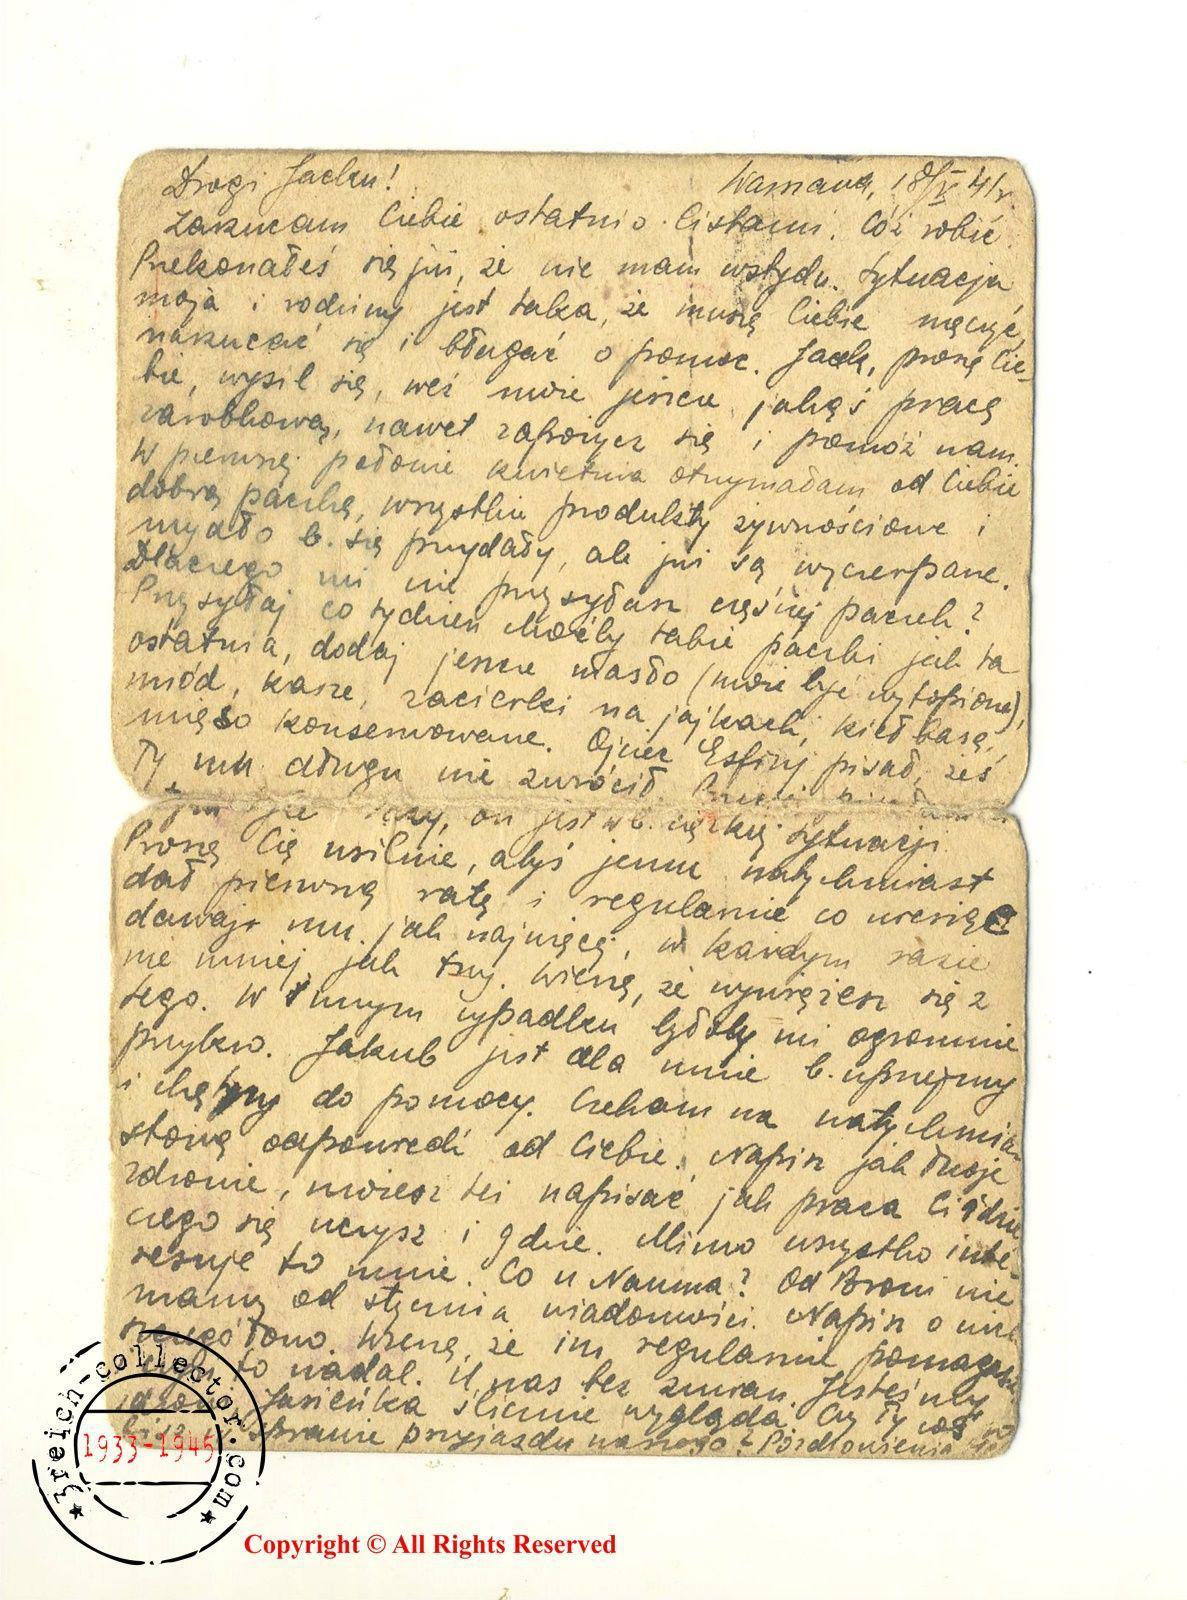 Drogi Jacku! Warszawa, 18/IV 41r.
Zarzucam Ciebie ostatnio listami. Cóż robić
Przekonałeś się już, że nie mam wstydu. Sytuacja
moja i rodziny jest taka, że muszę Ciebie męczyć,
narzucać się i błagać o pomoc. Jacek, proszę Cie-
bie, wysil się, weź może jeszcze jakąś pracę
zarobkową, nawet zapożycz się i pomóż nam.
W pierwszej połowie kwietnia otrzymałam od Ciebie
dobrą paczkę, wszystkie produkty żywnościowe i
mydło b. się przydały, ale już są wyczerpane.
Dlaczego mi nie przysyłasz częściej paczek?
Przysyłaj co tydzień choćby takie paczki jak ta
ostatnia, dodaj jeszcze masło (może być wytopione),
miód, kaszę, zacierki na jajkach, kiełbasę,
mięso konserwowane. Ojciec Esfiry pisał, żeś
Ty mu długu nie zwrócił.
on jest w b. ciężkiej sytuacji.
Proszę Cię usilnie, abyś jemu natychmiast
dał pierwszą ratę i regularnie co miesiąc
dawaj mu jak najwięcej, w każdym razie
nie mniej jak trzy. Wierzę, że wywiążesz się z
tego. W innym wypadku byłoby mi ogromnie
przykro. Jakub jest dla mnie b. uprzejmy
i chętny do pomocy. Czekam na natychmia-
stową odpowiedź od Ciebie. Napisz jak Twoje
zdrowie, możesz też napisać jak praca Ci idzie
czego się uczysz i gdzie. Mimo wszystko inte-
resuje to mnie. Co u Nauma? Od Broni nie
mamy od stycznia wiadomości. Napisz o nich
szczegółowo. Wierzę, że im regularnie pomagasz.
to nadal. U nas bez zmian. Jesteśmy
Jasieńka ślicznie wygląda. Czy Ty coś
sprawie przyjazdu naszego? Pozdrowienia
3reich-collector.com
1933-1945
Copyright © All Rights Reserved